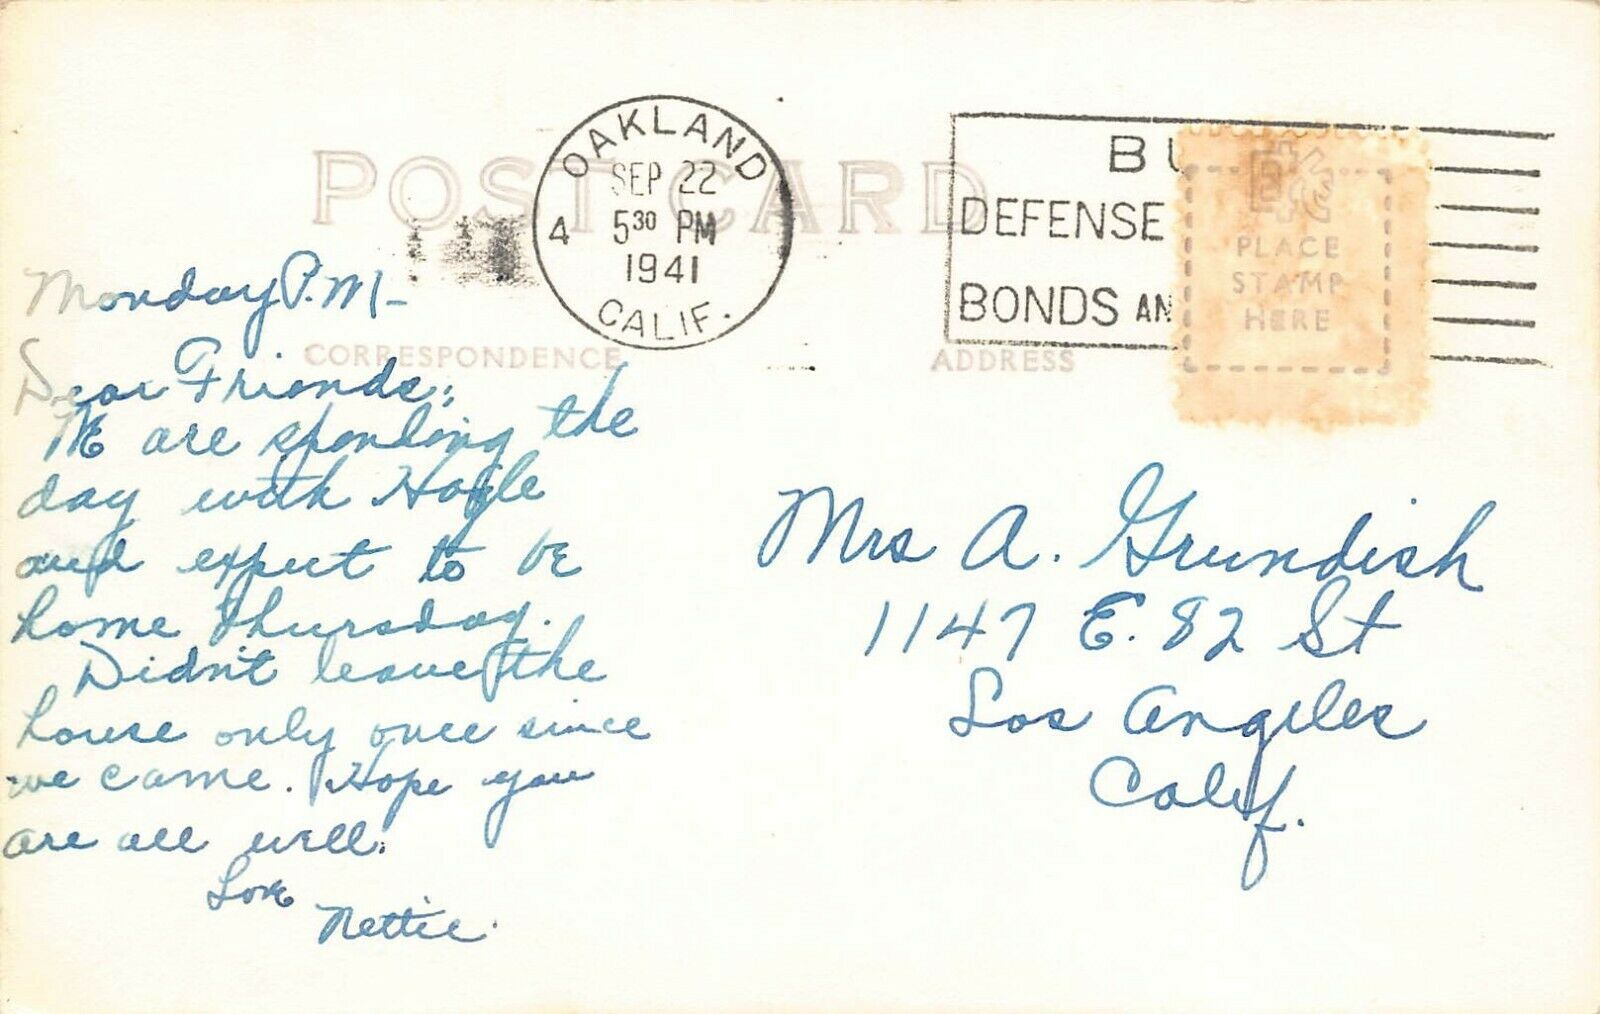 POST CARD
OAKLAND
SEP 22
4 5 30 PM
1941
CALIF.
BU
DEFENSE
BONDS AN
PLACE
STAMP
HERE
CORRESPONDENCE
ADDRESS
Monday P.M-
Dear Friends;
We are spending the
day with Hoyle
and expect to be
home Thursday.
Didn't leave the
house only once since
we came. Hope you
are all well.
Love
Nettie.
Mrs A. Grundish
1147 E. 82 St
Los Angeles
Calif.